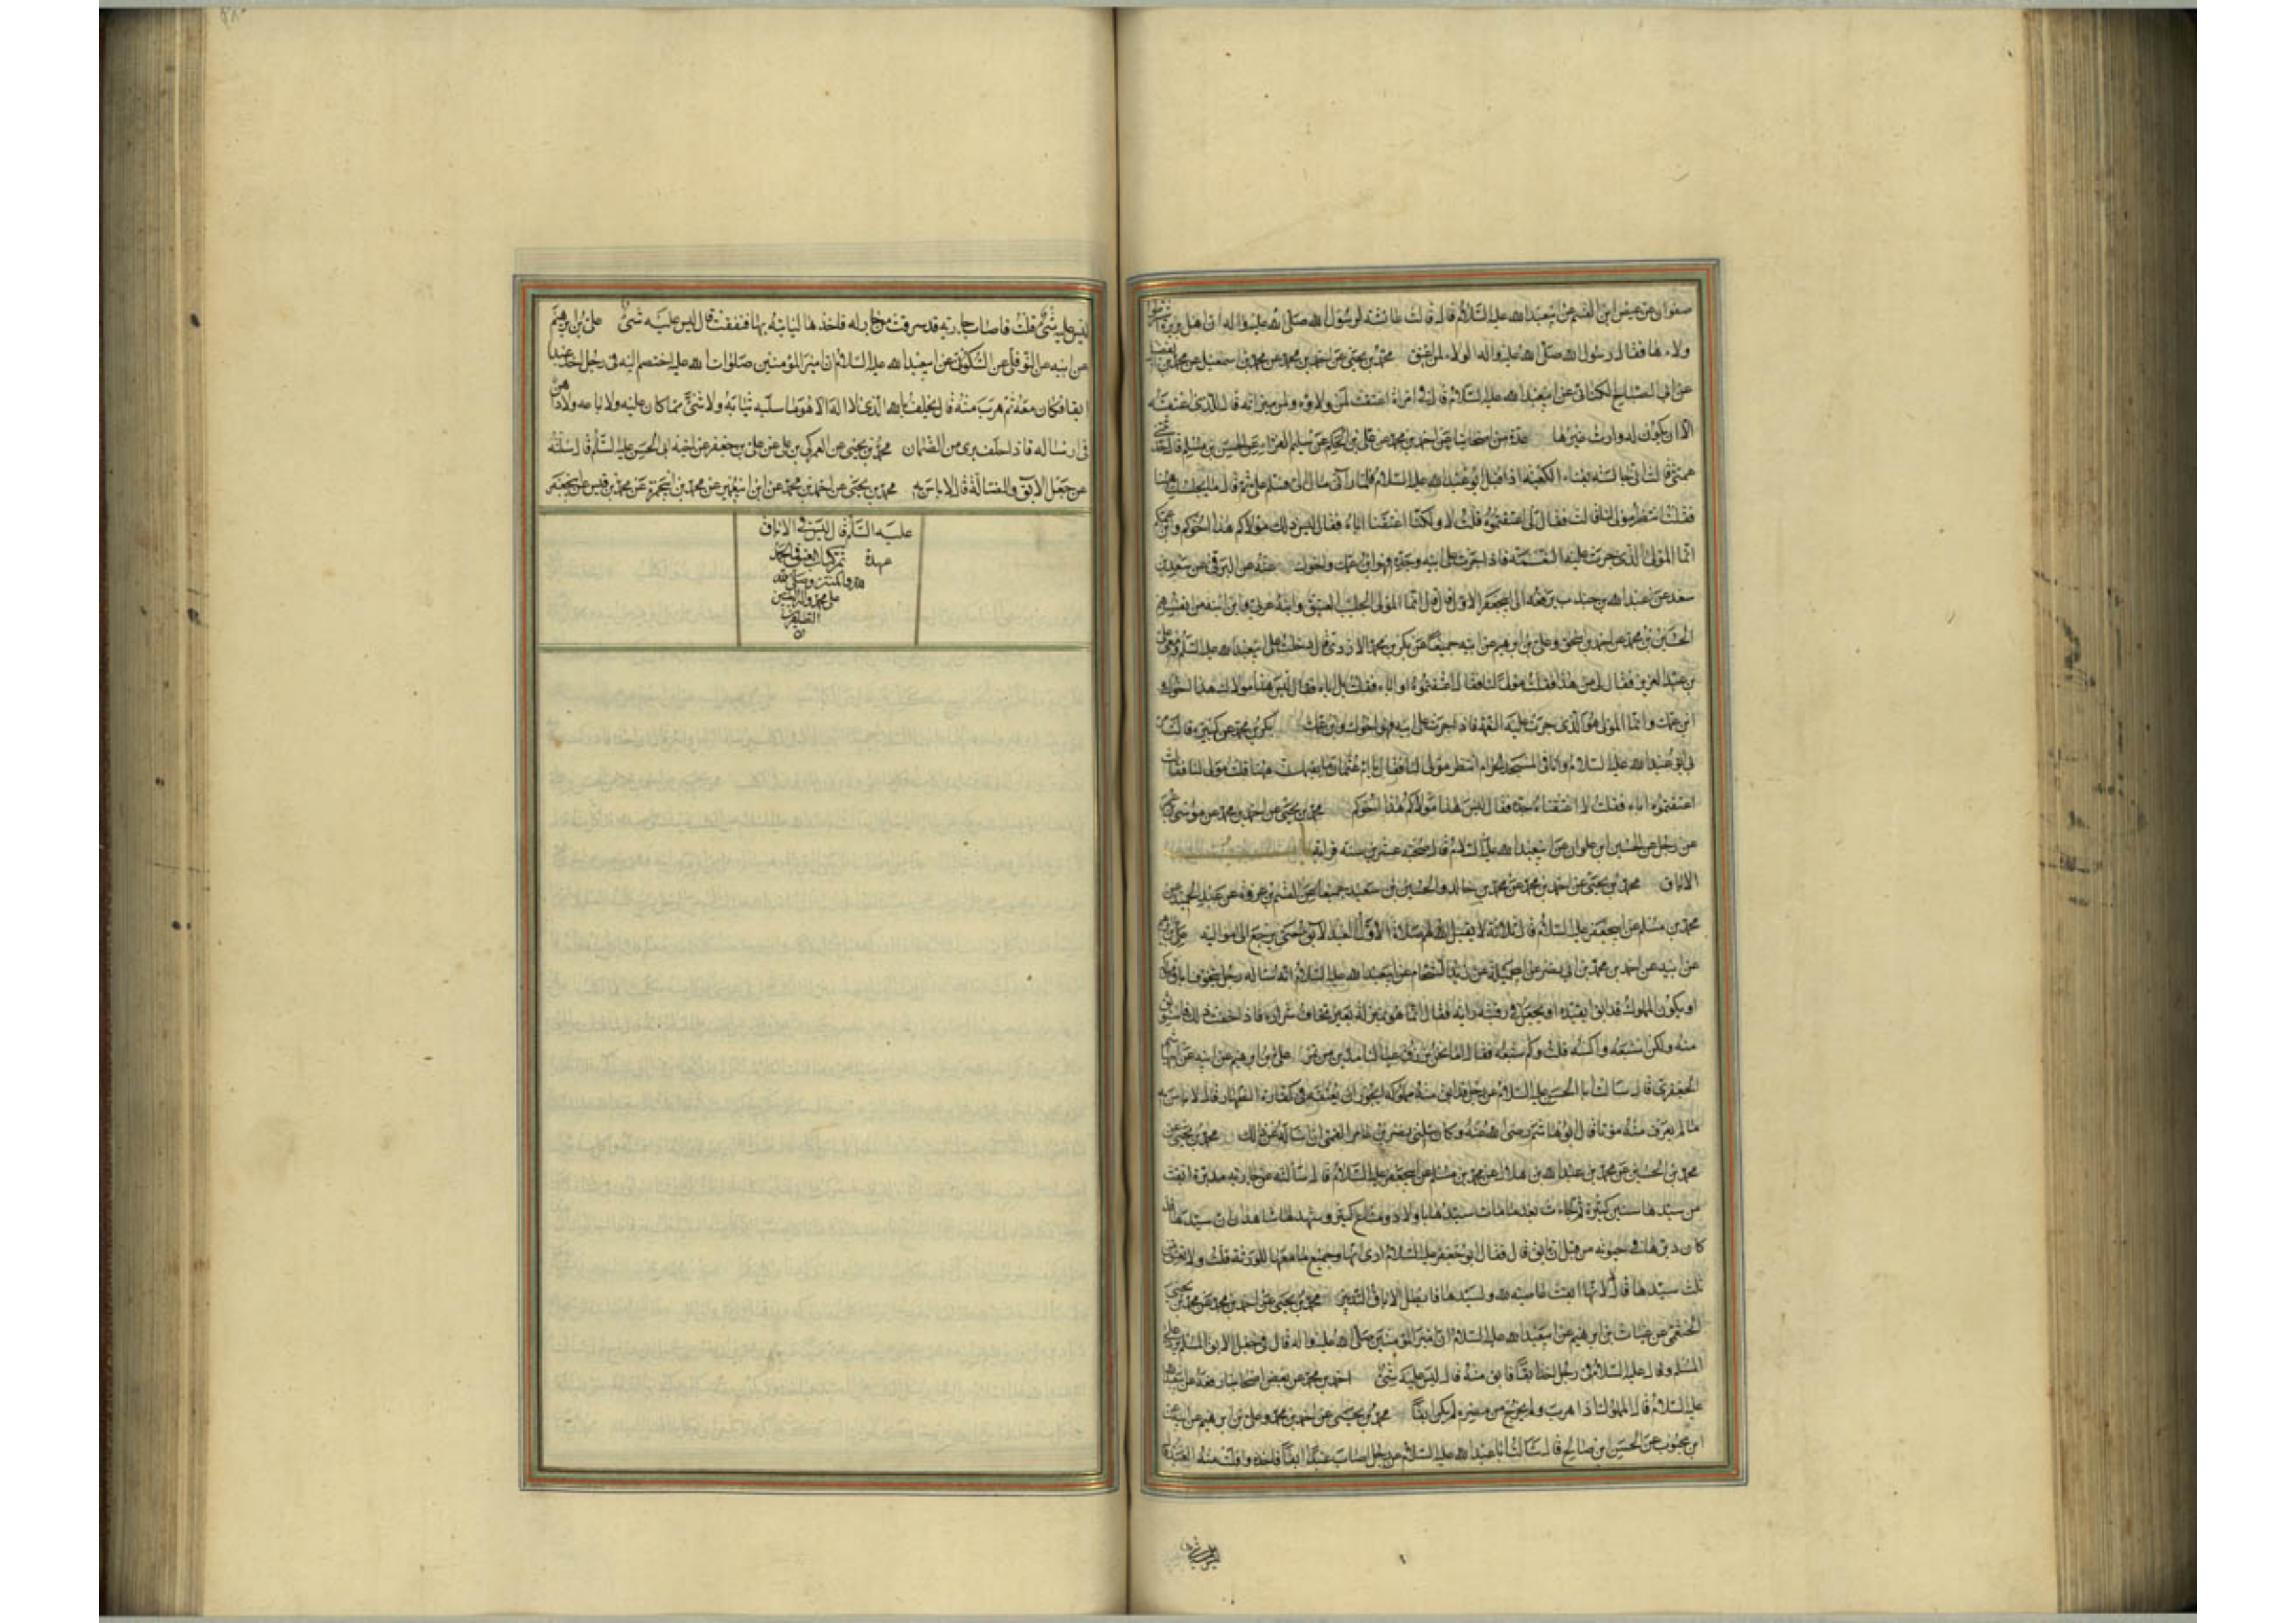 صفوان عن عيص ابن القسم عن ابيعبدالله عليه السلام قال قالت عائشة لرسول الله صلى الله عليه واله ان اهل بريرة اشترطوا
ولاءها فقال رسول الله صلى الله عليه واله الولاء لمن اعتق محمد بن يحيى عن احمد بن محمد عن محمد بن اسمعيل عن محمد بن الفضيل
عن ابى الصباح الكنانى عن ابيعبدالله عليه السلام قال فى امراة اعتقت لمن ولاؤه ولمن ميراثه قال للذى اعتقه
الا ان يكون له وارث غيرها عدة من اصحابنا عن احمد بن محمد عن على بن الحكم عن سليم الفرا عن الحسن بن مسلم قال حدثتنى
عمتى قالت انى جالسة بفناء الكعبة اذ اقبل ابو عبدالله عليه السلام فلما رآنى مال الى فسلم على ثم قال ما يجلسك ههنا
فقلت انتظر مولى لنا قالت فقال لى اعتقتموه قلت لا ولكنا اعتقنا اباه فقال ليس ذلك مولاكم هذا اخوكم وابن عمكم
انما المولى الذى جرت عليه النعمة فاذا جرت على ابيه وجده فهو ابن عمك واخوك عنه عن البرقى عن سعد بن
سعد عن عبدالله بن جندب يرفعه الى ابيجعفر الاول قال قال انما المولى الجليب العتيق وابنه عربى وابن ابنه من انفسهم
الحسين بن محمد عن احمد بن اسحق وعلى بن ابرهيم عن ابيه جميعا عن بكر بن محمد الازدى قال دخلت على ابيعبدالله عليه السلم ومعى على
بن عبدالعزيز فقال لى من هذا فقلت مولى لنا فقال اعتقتموه او اباه فقلت بل اباه فقال ليس هذا مولاك هذا اخوك و
ابن عمك وانما المولى هو الذى جرت عليه النعمة فاذا جرت على ابيه فهو اخوك وابن عمك بكر بن محمد عن كثيره قالت مر
بى ابو عبدالله عليه السلام وانا فى المسجد الحرام انتظر مولى لنا فقال يا ام عثمان ما يقيمك ههنا قلت مولى لنا فقال
اعتقتموه اباه فقلت لا اعتقنا جده فقال ليس هذا مولاكم هذا اخوكم محمد بن يحيى عن احمد بن محمد عن موسى بن عمر
عن رجل عن الحسين ابن علوان عن ابيعبدالله عليه السلام قال صحبة عشرين سنة قرابة
الاباق محمد بن يحيى عن احمد بن محمد عن محمد بن خالد والحسين بن سعيد جميعا عن القسم بن عروة عن عبدالحميد عن
محمد بن مسلم عن ابيجعفر عليه السلام قال ثلاثة لا يقبل الله لهم صلاة الاول العبد الآبق حتى يرجع الى مواليه على بن ابرهيم
عن ابيه عن احمد بن محمد بن ابى نصر عن ابى جميلة عن زيد الشحام عن ابيعبدالله عليه السلام انه ساله رجل يتخوف اباق مملوكه
او يكون المملوك قد ابق ايقيده او يجعل فى رقبته راية فقال انما هو بمنزلة بعير تخاف شراده فاذا خفت ذلك فاستوثق
منه ولكن اشبعه واكسه قلت وكم شبعه فقال اما نحن نرزق عيالنا مدين من تمر على بن ابرهيم عن ابيه عن ابى هاشم
الجعفرى قال سالت ابا الحسن عليه السلام عن رجل قد ابق منه مملوكه ايجوز ان يعتقه فى كفارة الظهار قال لا باس به
ما لم يعرف منه موتا قال ابو هاشم رضى الله عنه وكان سالنى نصر بن عامر القمى ان اساله عن ذلك محمد بن يحيى عن
محمد بن الحسين عن محمد بن عبدالله بن هلال عن محمد بن مسلم عن ابيجعفر عليه السلام قال سألته عن جارية مدبرة ابقت
من سيدها سنين كثيرة ثم جاءت بعد ما مات سيدها باولاد ومتاع كثير وشهد لها شاهدان ان سيدها قد
كان دبرها فى حيوته من قبل ان تابق قال فقال ابو جعفر عليه السلام ارى انها وجميع ما معها للورثة قلت ولا تعتق من
ثلث سيدها قال لا انها ابقت عاصية لله ولسيدها فابطل الاباق التدبير محمد بن يحيى عن احمد بن محمد عن محمد بن يحيى
الخثعمى عن غياث بن ابرهيم عن ابيعبدالله عليه السلام ان امير المؤمنين صلى الله عليه واله قال فى جعل الابق المسلم يرد على
المسلم وقال عليه السلام فى رجل اخذ ابقا فابق منه قال ليس عليه شئ احمد بن محمد عن بعض اصحابنا رفعه عن ابيعبدالله
عليه السلام قال المملوك اذا هرب ولم يخرج من مصره لم يكن ابقا محمد بن يحيى عن احمد بن محمد وعلى بن ابرهيم عن ابيه عن
ابن محبوب عن الحسن ابن صالح قال سالت ابا عبدالله عليه السلام عن رجل اصاب عبدا ابقا فاخذه وافلت منه العبد قال
ليس عليه شئ قلت فاصاب جارية قد سرقت من جار له فاخذها ليأتيه بها فنفقت قال ليس عليه شئ على بن ابرهيم
عن ابيه عن النوفلى عن السكونى عن ابيعبدالله عليه السلام ان امير المؤمنين صلوات الله عليه اختصم اليه فى رجل اخذ عبدا
ابقا فكان معه ثم هرب منه قال يحلف بالله الذى لا اله الا هو ما سلبه ثيابه ولا شئ مما كان عليه ولا باعه ولا داهن
فى ارساله فاذا حلف برى من الضمان محمد بن يحيى عن العمركى بن على عن على بن جعفر عن اخيه ابى الحسن عليه السلم قال سألته
عن جعل الابق والضالة قال لا باس به محمد بن يحيى عن احمد بن محمد عن ابن ابيعمير عن محمد بن ابيحمزة عن محمد بن قيس عن ابيجعفر
عليه السلم قال ليس فى الاباق
عهدة تم كتاب العتق والحمد
لله والمنة وصلى الله
على محمد واله الطيبين
الطاهرين